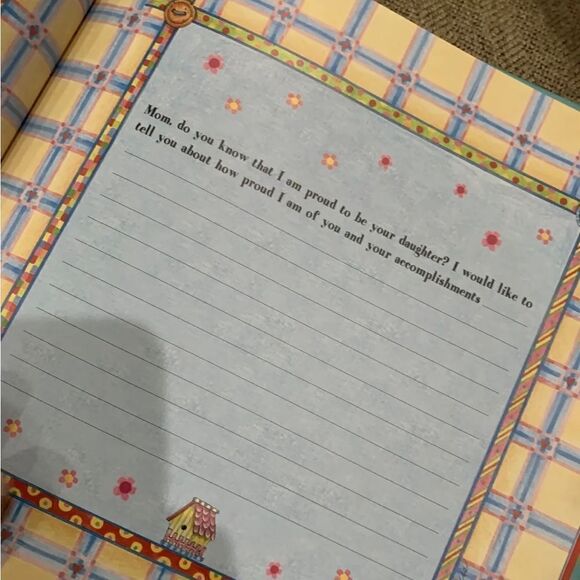 Mom, do you know that I am proud to be your daughter? I would like to
tell you about how proud I am of you and your accomplishments